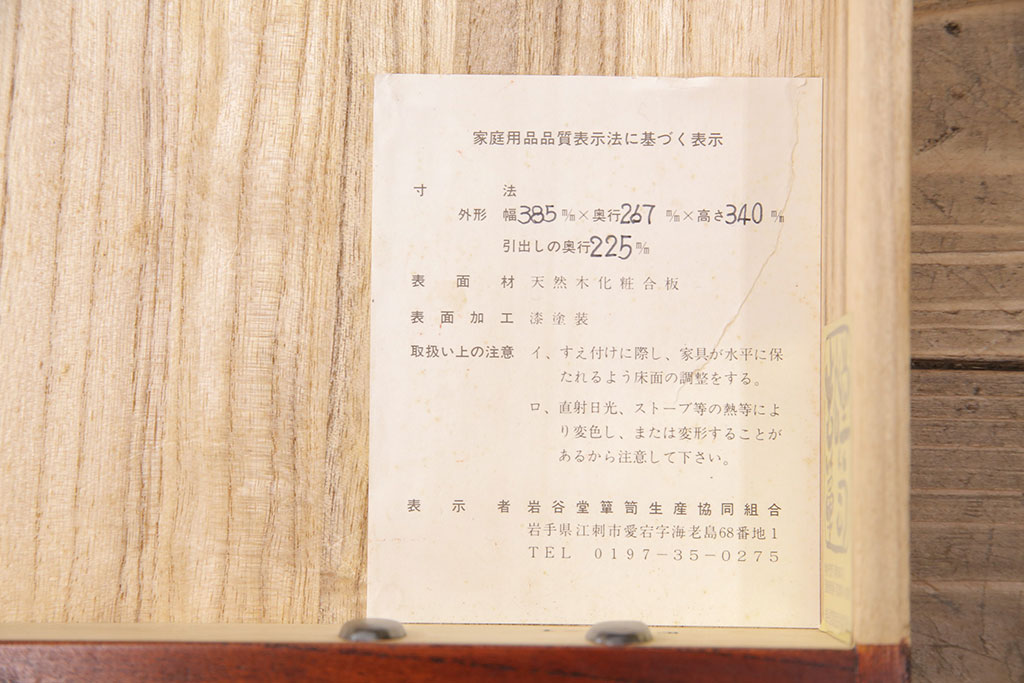 家庭用品品質表示法に基づく表示
寸法
外形 幅385㎜×奥行267㎜×高さ340㎜
引出しの奥行225㎜
表面材 天然木化粧合板
表面加工 漆塗装
取扱い上の注意 イ、すえ付けに際し、家具が水平に保
たれるよう床面の調整をする。
ロ、直射日光、ストーブ等の熱等によ
り変色し、または変形することが
あるから注意して下さい。
表示者 岩谷堂簞笥生産協同組合
岩手県江刺市愛宕字海老島68番地1
TEL 0197-35-0275